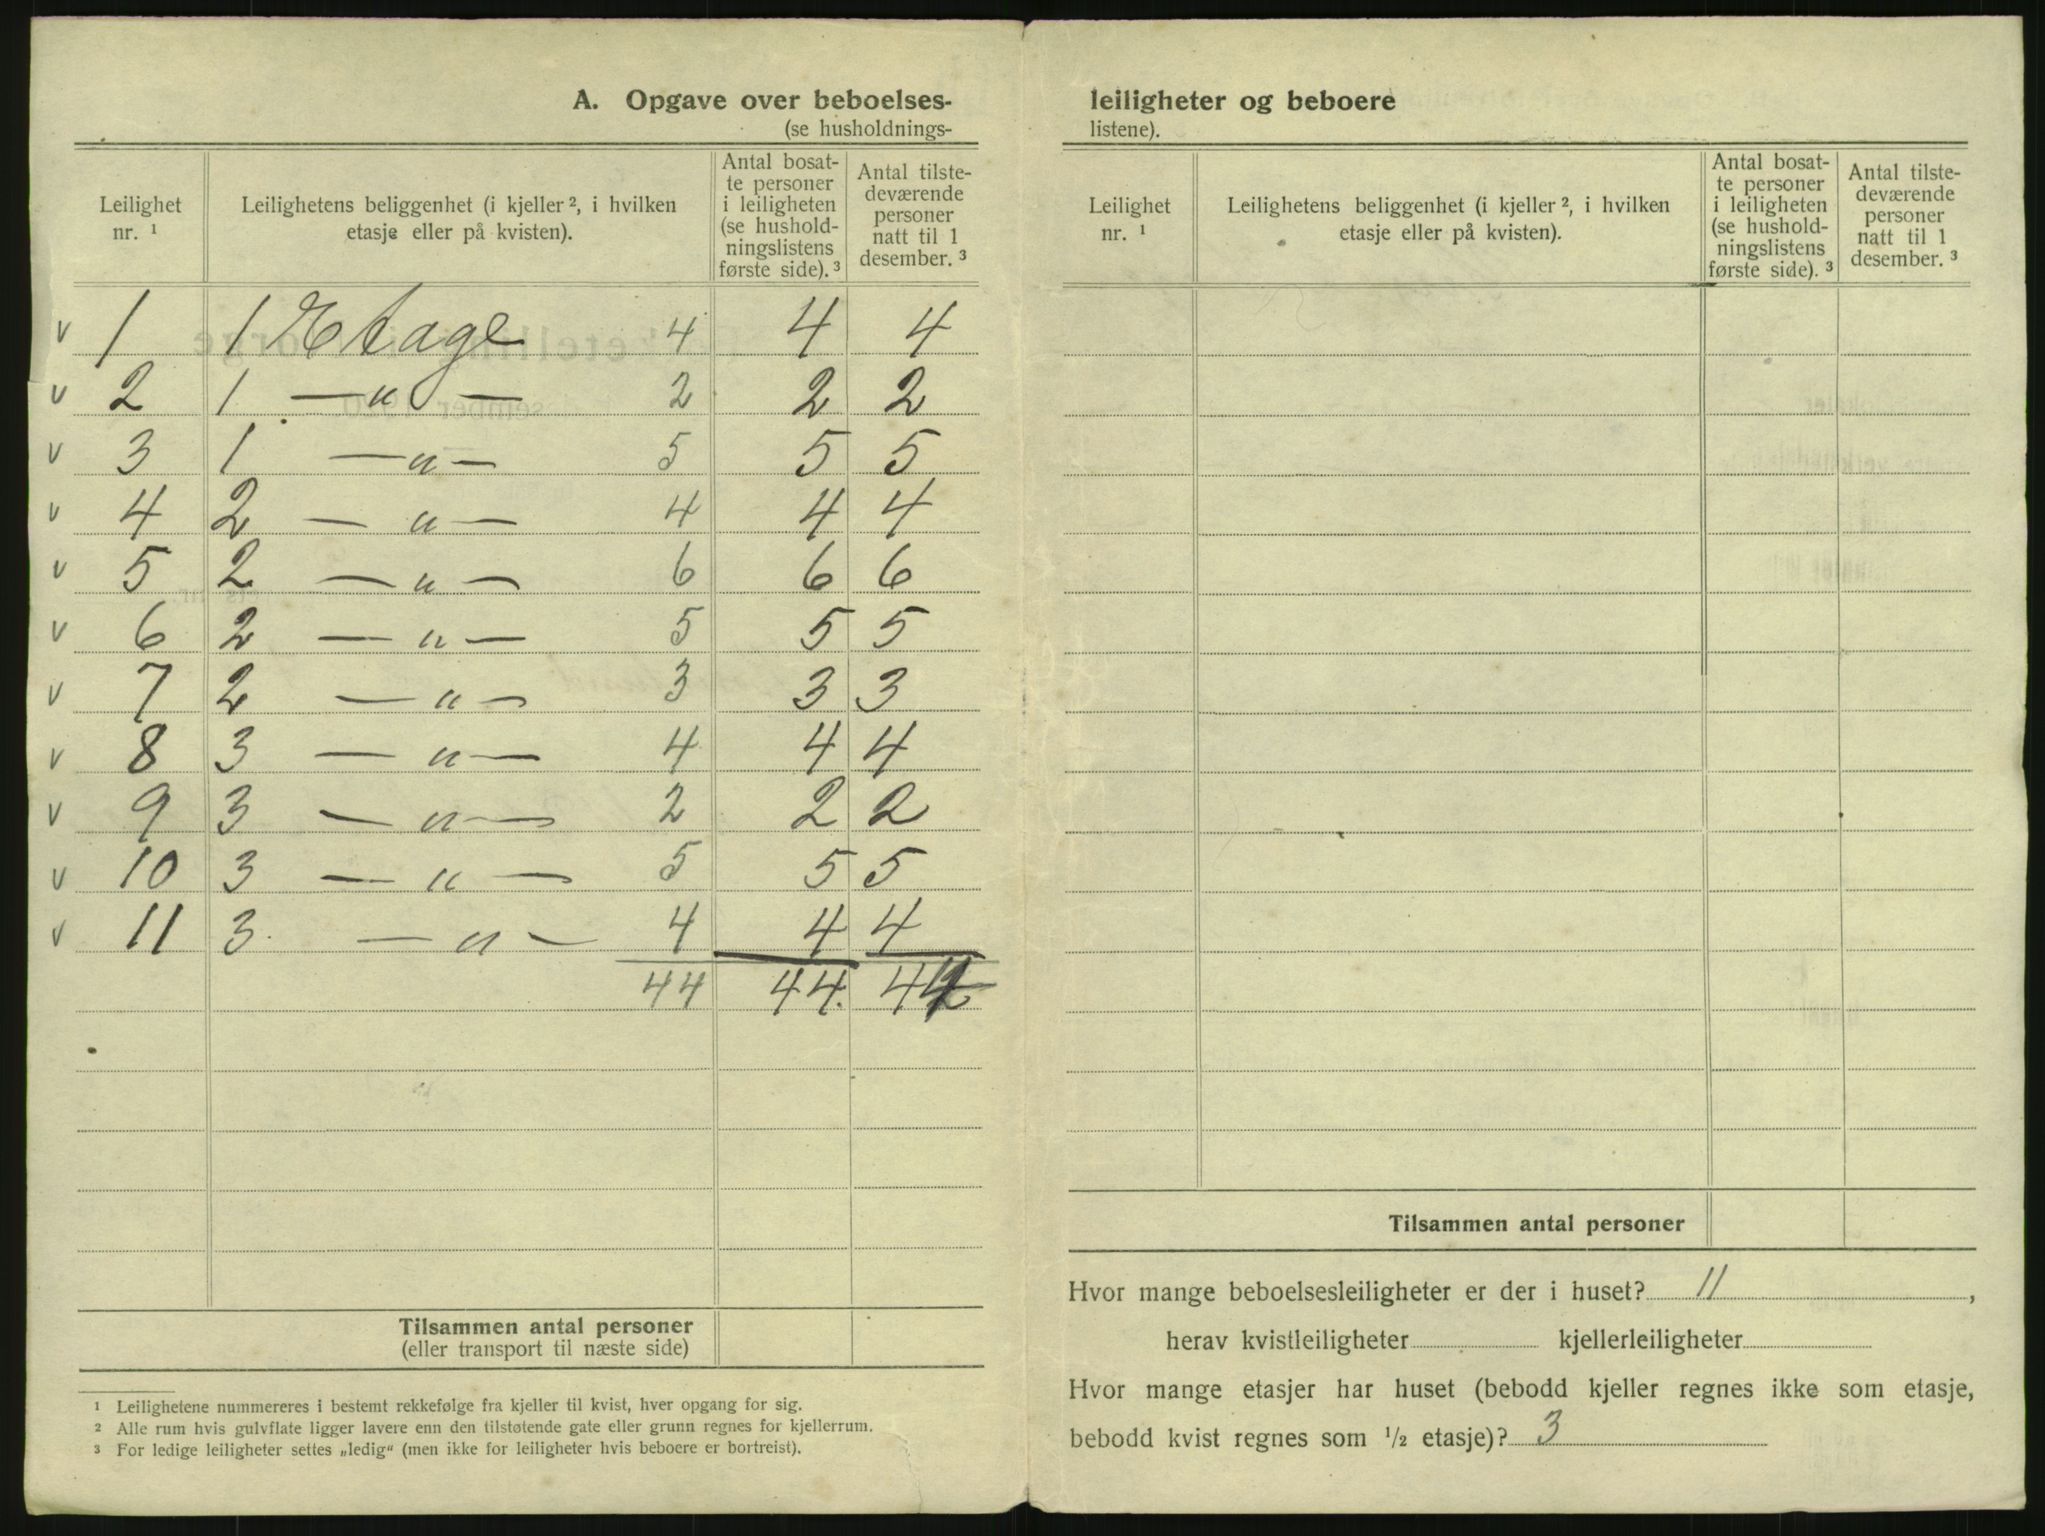 A. Opgave over beboelses-
(se husholdnings-
Leilighet nr. 1 | Leilighetens beliggenhet (i kjeller 2, i hvilken etasje eller på kvisten). | Antal bosat-te personer i leiligheten (se hushold-ningslistens første side). 3 | Antal tilste-deværende personer natt til 1 desember. 3
v 1 1 Etage 4 4 4
v 2 1 — " — 2 2 2
v 3 1 — " — 5 5 5
v 4 2 — " — 4 4 4
v 5 2 — " — 6 6 6
v 6 2 — " — 5 5 5
v 7 2 — " — 3 3 3
v 8 3 — " — 4 4 4
v 9 3 — " — 2 2 2
v 10 3 — " — 5 5 5
v 11 3 — " — 4 4 4
44 44. 44
Tilsammen antal personer
(eller transport til næste side)
1 Leilighetene nummereres i bestemt rekkefølge fra kjeller til kvist, hver opgang for sig.
2 Alle rum hvis gulvflate ligger lavere enn den tilstøtende gate eller grunn regnes for kjellerrum.
3 For ledige leiligheter settes „ledig“ (men ikke for leiligheter hvis beboere er bortreist).
leiligheter og beboere
listene).
Leilighet nr. 1 | Leilighetens beliggenhet (i kjeller 2, i hvilken etasje eller på kvisten). | Antal bosat-te personer i leiligheten (se hushold-ningslistens første side). 3 | Antal tilste-deværende personer natt til 1 desember. 3
Tilsammen antal personer
Hvor mange beboelsesleiligheter er der i huset? 11 ,
herav kvistleiligheter kjellerleiligheter
Hvor mange etasjer har huset (bebodd kjeller regnes ikke som etasje,
bebodd kvist regnes som 1/2 etasje)? 3